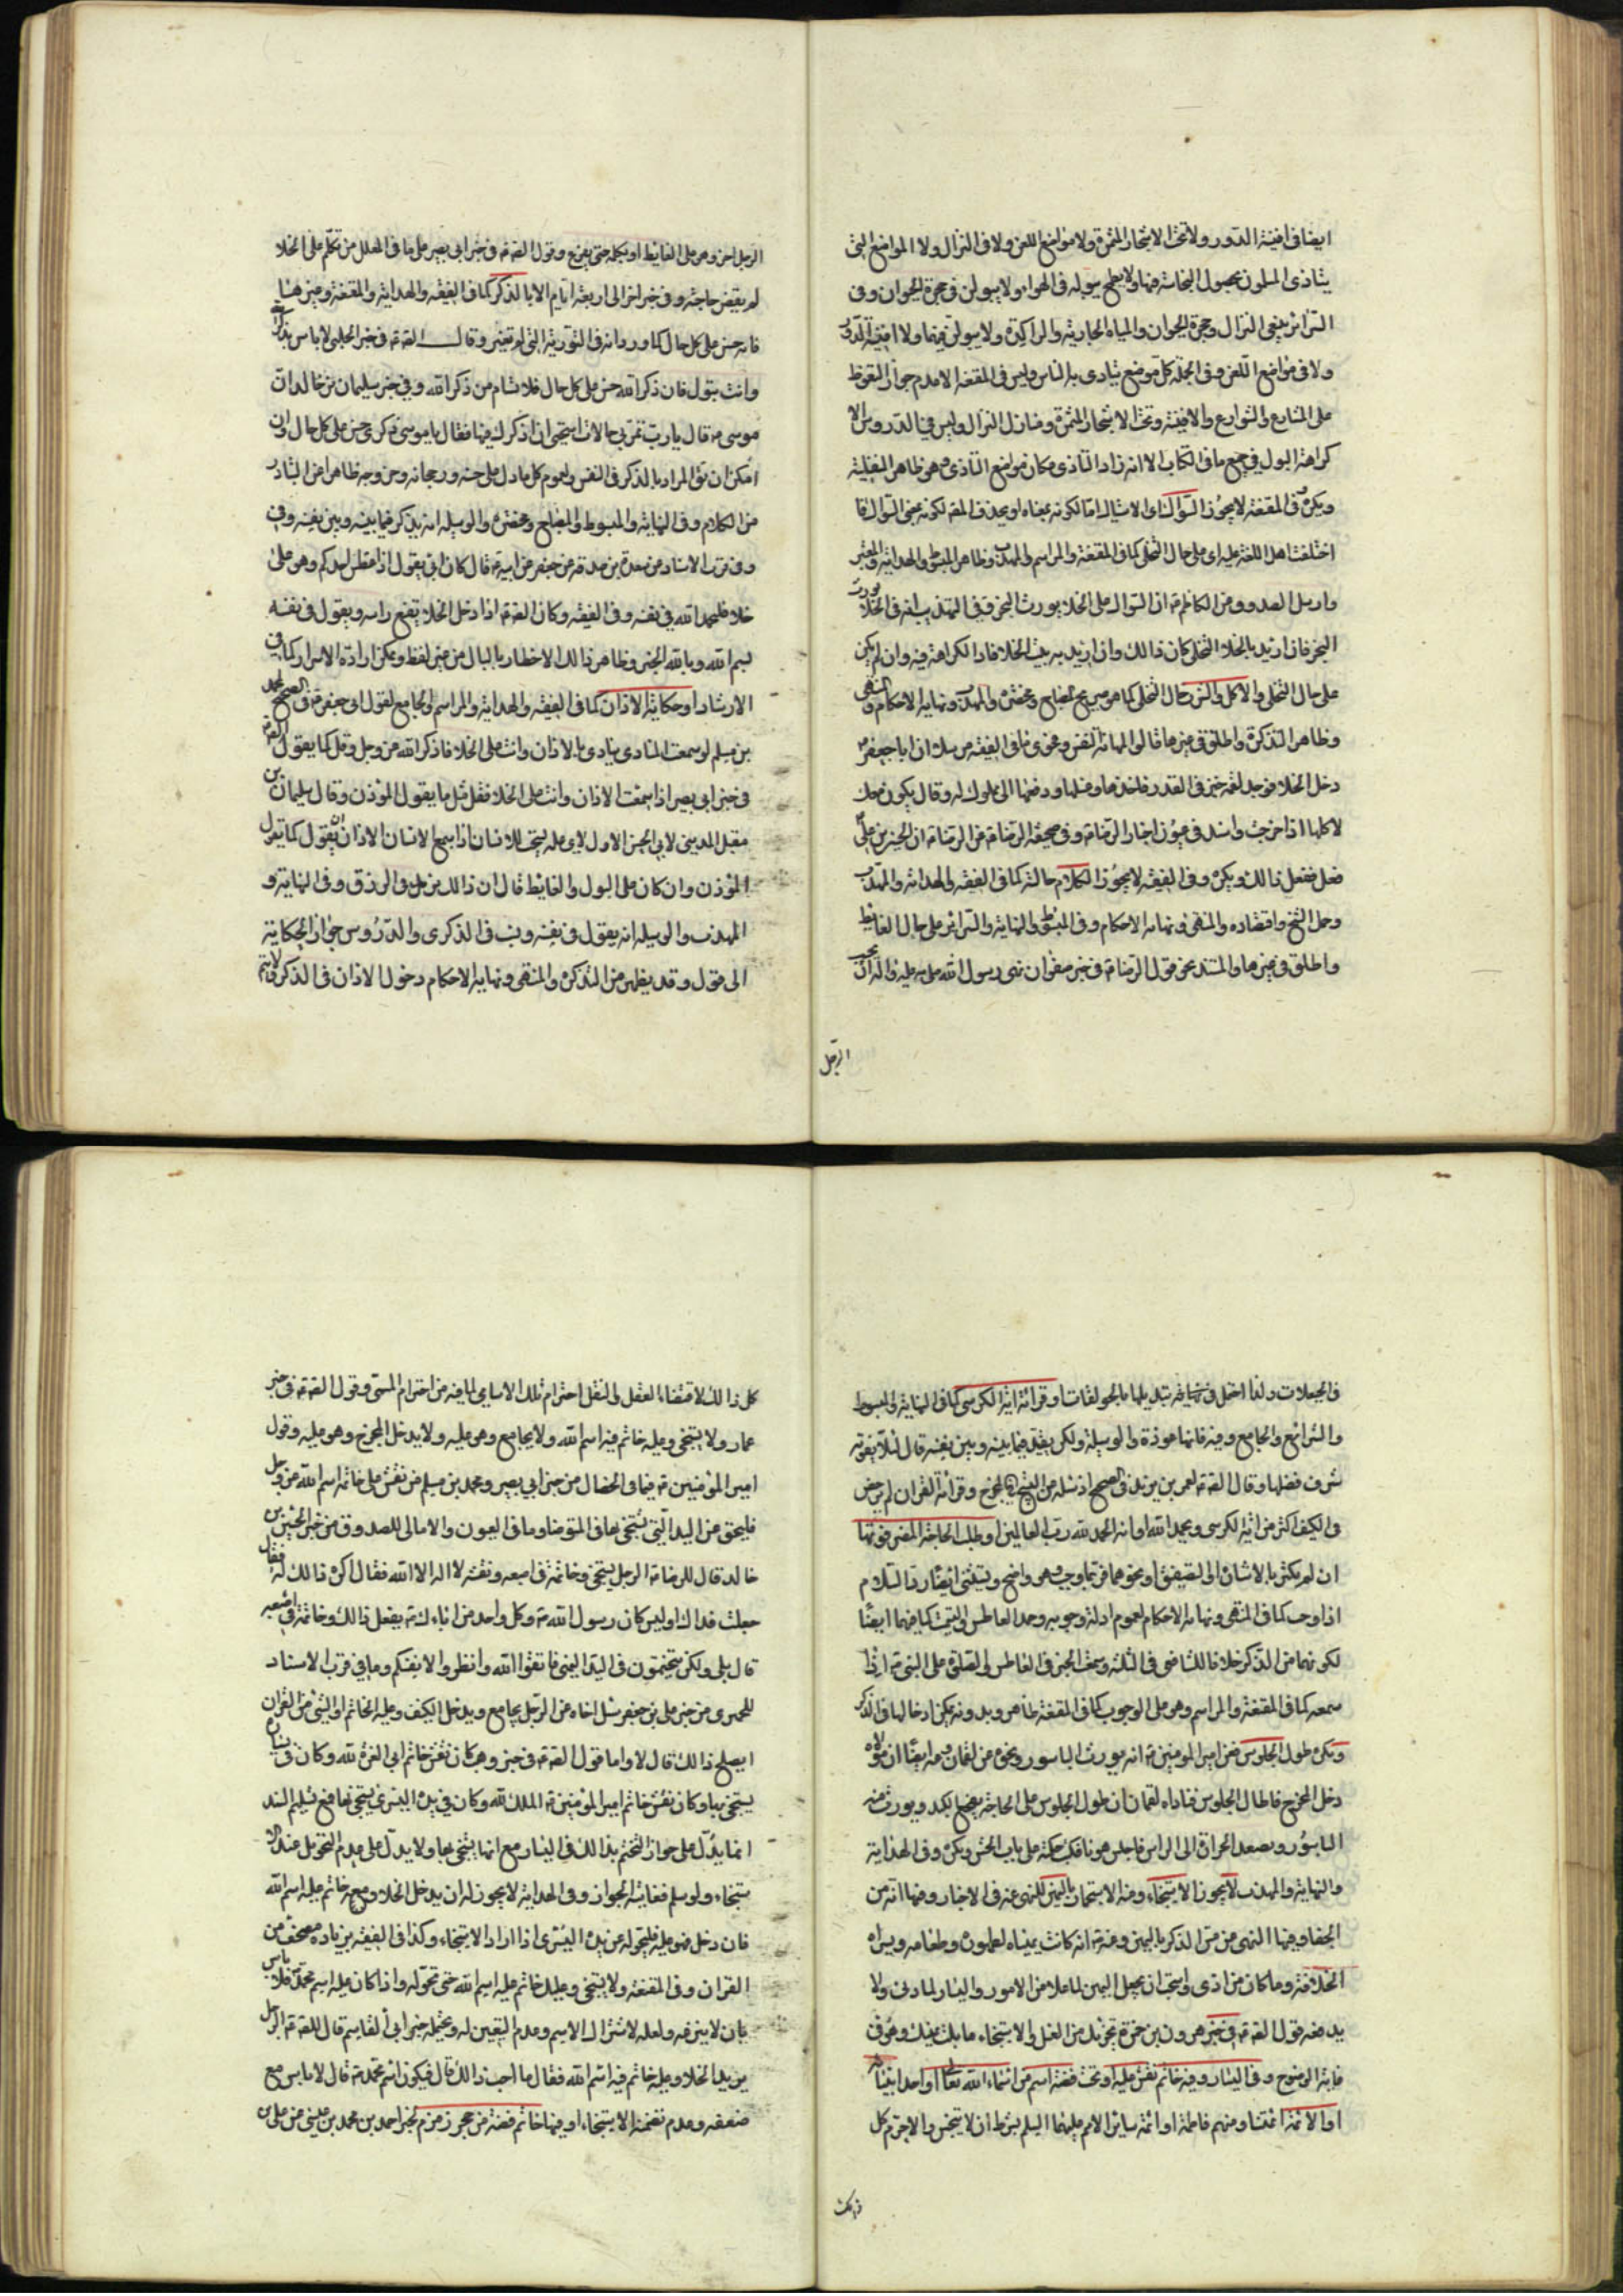 ايضا في افنية الدور ولا تحت الاشجار المثمرة ولا مواضع اللعن ولا فى النزال ولا المواضع التى
يتاذى المسلمون بحصول النجاسة فيها ولا يطمح ببوله فى الهواء ولا يبولن فى جحرة الحيوان وفى
السرائر بفيئ النزال وجحرة الحيوان والمياه الجارية والراكدة ولا يبولن فيهما ولا افنية الدور
ولا فى مواضع اللعن وفى الجملة كل موضع يتاذى به الناس وليس فى المقنعة الا عدم جواز التغوط
على المشارع والشوارع والافنية وتحت الاشجار المثمرة ومنازل النزال وليس في الدروس الا
كراهة البول في جميع ما فى الكتاب الا انه زاد التاذى مكان مواضع التاذى وهو ظاهر النفلية
ويكره وفى المقنعة لا يجوز السواك اى الاستياك اما لكونه بمعناه او بحذف المضـ لكونه بمعنى السواك فا
اختلفت اهل اللغة عليه اى على حال التخلى كما فى المقنعة والمراسم والمهذب وظاهر المبسوط والهداية والمعتبر
وارسل الصدوق عن الكاظم ع ان السواك على الخلا يورث البخر وفى التهذيب انه فى الخلا يورث
البخر فان اريد بالخلا التخلى كان ذالك وان اريد به بيت الخلا فاد الكراهة فيه وان لم يكن
على حال التخلى والاكل والشرب حال التخلى كما هو صريح المصباح ومختصره والمهذب ونهاية الاحكام والمنتهى
وظاهر التذكرة واطلق فى غيرها قالوا لمهانة النفس وفحوى ما فى الفقيه مرسلا ان ابا جعفر ع
دخل الخلا فوجد لقمة خبز فى القذر فاخذها وغسلها ودفعها الى مملوك له وقال يكون معك
لاكلها اذا خرجت واسند فى عيون اخبار الرضا ع وفى صحيفة الرضا ع عن الرضا ع ان الحسين بن على ع
فعل ذالك ويكره وفى الفقيه لا يجوز الكلام حالته كما فى الفقيه والهداية والمهذب
وحمل الشيخ واقتصاده والمنتهى ونهاية الاحكام وفى المبسوط والنهاية والسرائر على حال الغايط
واطلق فى غيرها والمستند نحو قول الرضا ع فى خبر صفوان نهى رسول الله صلى الله عليه واله ان يجيب
الرجل
الرجل اخر وهو على الغايط او يكلمه حتى يفرغ وقول الصـ ع فى خبر ابى بصير على ما فى العلل من تكلم على الخلا
لم يقض حاجته وفى خبر اخر الى اربعة ايام الا بالذكر كما فى الفقيه والهداية والمقنعة وغيرها
فانه حسن على كل حال كما ورد انه فى التورية التى لم تغير وقال الصـ ع فى خبر الحلبى لا باس بذكر الله
وانت تبول فان ذكر الله حسن على كل حال فلا تسام من ذكر الله وفى خبر سليمان بن خالد ان
موسى ع قال يا رب تمر بى حالات استحيى ان اذكرك فيها فقال يا موسى ذكرى حسن على كل حال وان
امكن ان يق المراد بالذكر فى النفس ولعموم كل ما دل على حسنه ورجحانه وخروجه ظاهرا عن المتبادر
من الكلام وفى النهاية والمبسوط والمصباح ومختصره والوسيلة انه يذكر فيما بينه وبين نفسه وفى
وفى قرب الاسناد عن مسعدة بن صدقة عن جعفر عن ابيه ع قال كان ابى يقول اذا عطس احدكم وهو على
خلا فليحمد الله فى نفسه وفى الفقيه وكان الصـ ع اذا دخل الخلا يقنع راسه ويقول فى نفسه
بسم الله وبالله الخبر وظاهر ذالك الاخطار بالبال من غير لفظ ويمكن ارادة الاسرار كما فى
الارشاد او حكاية الاذان كما فى الفقيه والهداية والمراسم والجامع لقول ابى جعفر ع فى الصحيح لمحمد
بن مسلم لو سمعت المنادى ينادى بالاذان وانت على الخلا فاذكر الله عز وجل وقل كما يقول الصـ ع
فى خبر ابى بصير اذا سمعت الاذان وانت على الخلا فقل مثل ما يقول المؤذن وقال سليمان بن
مقبل المدينى لابى الحسن الاول لاى علة يستحب للانسان اذا سمع الاذان ان يقول كما يقول
المؤذن وان كان على البول والغايط قال ان ذالك يزيد فى الرزق وفى النهاية و
المهذب والوسيلة انه يقول فى نفسه ونـ فى الذكرى والدروس جواز الحكاية
الى قول وقد يظهر من التذكرة والمنتهى ونهاية الاحكام دخول الاذان فى الذكر لا يتم
فى الحيعلات ولذا احتمل فى تبديلها بالحولقات او قرائة اية الكرسى كما فى النهاية والمبسوط
والشرائع والجامع وفيه فانها عوذة والوسيلة ولكن يقيد فيما بينه وبين نفسه قال لئلا يفوته
شرف فضلها وقال الصـ ع لعمر بن يزيد فى الصحيح اذ سئله عن التسبيح فى المخرج وقرائة القران لم يرخص
فى الكنيف اكثر من اية الكرسى ويحمد الله او اية الحمد لله رب العالمين او طلب الحاجة المضر فوتها
ان لم يمكن بالاشارة او التصفيق او نحوهما فربما وجب وهو واضح ويستثنى ايضا رد السلام
اذا وجب كما فى المنتهى ونهاية الاحكام لعموم ادلة وجوبه وحمد العاطس والتسميت كما فيهما ايضا
لكونهما من الذكر خلافا للشافعى فى الثلثة وسمعت الخبر فى العاطس والصلوة على النبى ع اذا
سمعه كما فى المقنعة والمراسم وهو على الوجوب كما فى المقنعة ظاهر وبدونه يمكن ادخالها فى الذكر
ويكره طول الجلوس فعن امير المؤمنين ع انه يورث الباسور ونحوه عن لقمان وعنه ايضا ان مولاه
دخل المخرج فاطال الجلوس فناداه لقمان ان طول الجلوس على الحاجة يفجع الكبد ويورث منه
الباسور ويصعد الحرارة الى الراس فاجلس هونا فكتب حكمته على باب الحش ويكره وفى الهداية
والنهاية والمهذب لا يجوز الاستنجاء ومنه الاستجمار باليمين للنهى عنه فى الاخبار وفيها انه من
الجفا وفيها النهى عن مس الذكر باليمين وعنه ع انه كانت يمناه لطهوره وطعامه ويسراه
لخلائه وما كان من اذى واستحب ان يجعل اليمين لما علا من الامور واليسار لما دنى ولا
يدفعه قول الصـ ع فى خبر هرون بن حمزة يجزيك من الغسل والاستنجاء ما بلت يمينك وهو فى
غاية الوضوح وفى اليسار وفيه خاتم نقش عليه او تحت فصه اسم من اسماء الله تعالى او احد انبيائه
او الائمة ائمتنا ومنهم فاطمة او ائمة سائر الامم عليهم السلم بشرط ان لا يتنجس والا حرم كل
كل ذالك لاقتضاء العقل والنقل احترام تلك الاسامى لما فيه من احترام المسمى وقول الصـ ع فى خبر
عمار ولا يستنجى وعليه خاتم فيه اسم الله ولا يجامع وهو عليه ولا يدخل المخرج وهو عليه وقول
امير المؤمنين ع فيما فى الخصال من خبر ابى بصير ومحمد بن مسلم من نقش على خاتمه اسم الله عز وجل
فليحوله عن اليد التى يستنجى بها فى المتوضا وما فى العيون والامالى للصدوق من خبر الحسين بن
خالد قال للرضا ع الرجل يستنجى وخاتمه فى اصبعه ونقشه لا اله الا الله فقال اكره ذالك له فقال
جعلت فداك اوليس كان رسول الله ص وكل واحد من ابائك ع يفعل ذالك وخاتمه فى اصبعه
قال بلى ولكن يتختمون فى اليد اليمنى فاتقوا الله وانظروا لانفسكم وما فى قرب الاسناد
للحميرى من خبر على بن جعفر سئل اخاه عن الرجل يجامع ويدخل الكنيف وعليه الخاتم او الشئ من القران
ايصلح ذالك قال لا واما قول الصـ ع فى خبر وهب كان نقش خاتم ابى العزة لله وكان فى يساره
يستنجى بها وكان نقش خاتم امير المؤمنين ع الملك لله وكان فى يده اليسرى يستنجى بها فمع تسليم السند
انما يدل على جواز التختم بذالك فى اليسار مع انها يستنجى بها ولا يدل على عدم التحويل عند الا
ستنجاء ولو سلم فغايته الجواز وفى الهداية لا يجوز له ان يدخل الخلا ومعه خاتم عليه اسم الله
فان دخل وهو عليه فليحوله عن يده اليسرى اذا اراد الاستنجاء وكذا فى الفقيه بزيادة مصحف من
القران وفى المقنعة ولا يستنجى وعليه خاتم عليه اسم الله حتى تحوله واذا كان عليه اسم محمد فلا باس
بان لا ينزعه ولعله لاشتراك الاسم وعدم التعيين له ويحتمله خبر ابى القاسم قال للصـ ع الرجل
يريد الخلا وعليه خاتم فيه اسم الله فقال ما احب ذالك قال فيكون اسم محمد ص قال لا باس مع
ضعفه وعدم تضمنه الاستنجاء او فيها خاتم فصه من حجر زمزم لخبر احمد بن محمد بن عيسى عن على بن